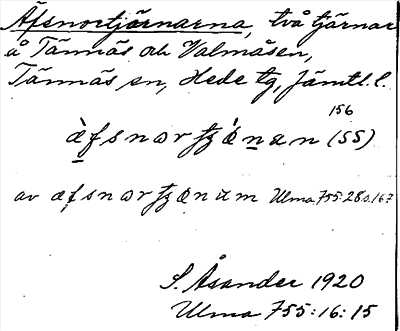 Äfsnortjärnarna, två tjärnar
å Tännäs och Valmåsen,
Tännäs sn, Hede tg, Jämtl. l.
156
æ̀fsnortjænan (SS)
av æfsnortjænum Ulma 755:28 s. 163
S. Åsander 1920
Ulma 755:16:15